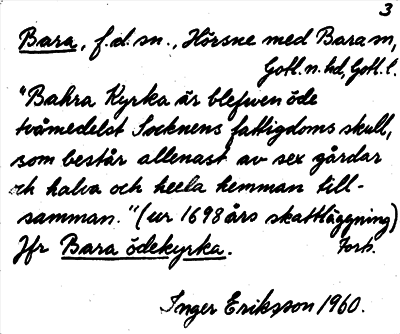 3
Bara, f.d. sn., Hörsne med Bara sn,
Gotl. n. hd, Gotl. l.
"Bahra Kyrka är blefwen öde
tvåmedelst Socknens fattigdoms skull,
som består allenast av sex gårdar
och halva och heela hemman till-
samman." (ur 1698 års skattläggning)
Jfr Bara ödekyrka. Forts.
Inger Eriksson 1960.